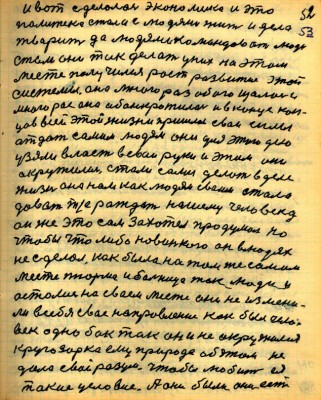 52
и вот сделалось экономика и это 53
политека стала с людями жить и дела
тварить да людями командоват люди
стали они так делат у них на этом
месте получился рост развитие этой
системы, она много раз обогощалос и
много рас она обонкротилос и в конце кон
цов всей этой жизни пришли свои силы
отдат самим людям они для этого дело
узяли власт в сваи руки и этим они
окружилис стали сами делат в деле
жизн она нам как людям своим стало
дават т/е раждат нашему человека
он же это сам захотел продумал но
чтобы что либо новинкого он в людях
не сделал, как была на том же самом
месте тюрма и болница так люди и
осталис на сваем месте они не измени-
ли в себя свае напровление как был чело-
век одно бак так он и не окружился
кругозорка ему природе об этом не
дала свой разум чтобы любит ей
такие условие. А они были они ест